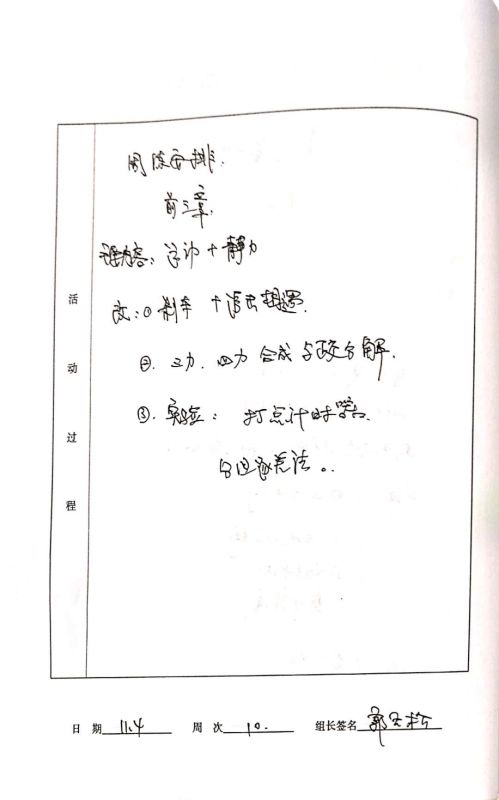 周练安排.
前三章.
课内容: 运动+静力
①刹车+追击相遇.
②.三力.四力合成与正交分解.
③.实验: 打点计时器.
逐差法。
活动过程
日期 11.4 周次 10. 组长签名 郭